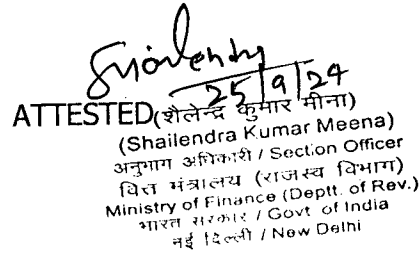 Shailendra
25/9/24
ATTESTED (शैलेन्द्र कुमार मीना)
(Shailendra Kumar Meena)
अनुभाग अधिकारी / Section Officer
वित्त मंत्रालय (राजस्व विभाग)
Ministry of Finance (Deptt. of Rev.)
भारत सरकार / Govt of India
नई दिल्ली / New Delhi